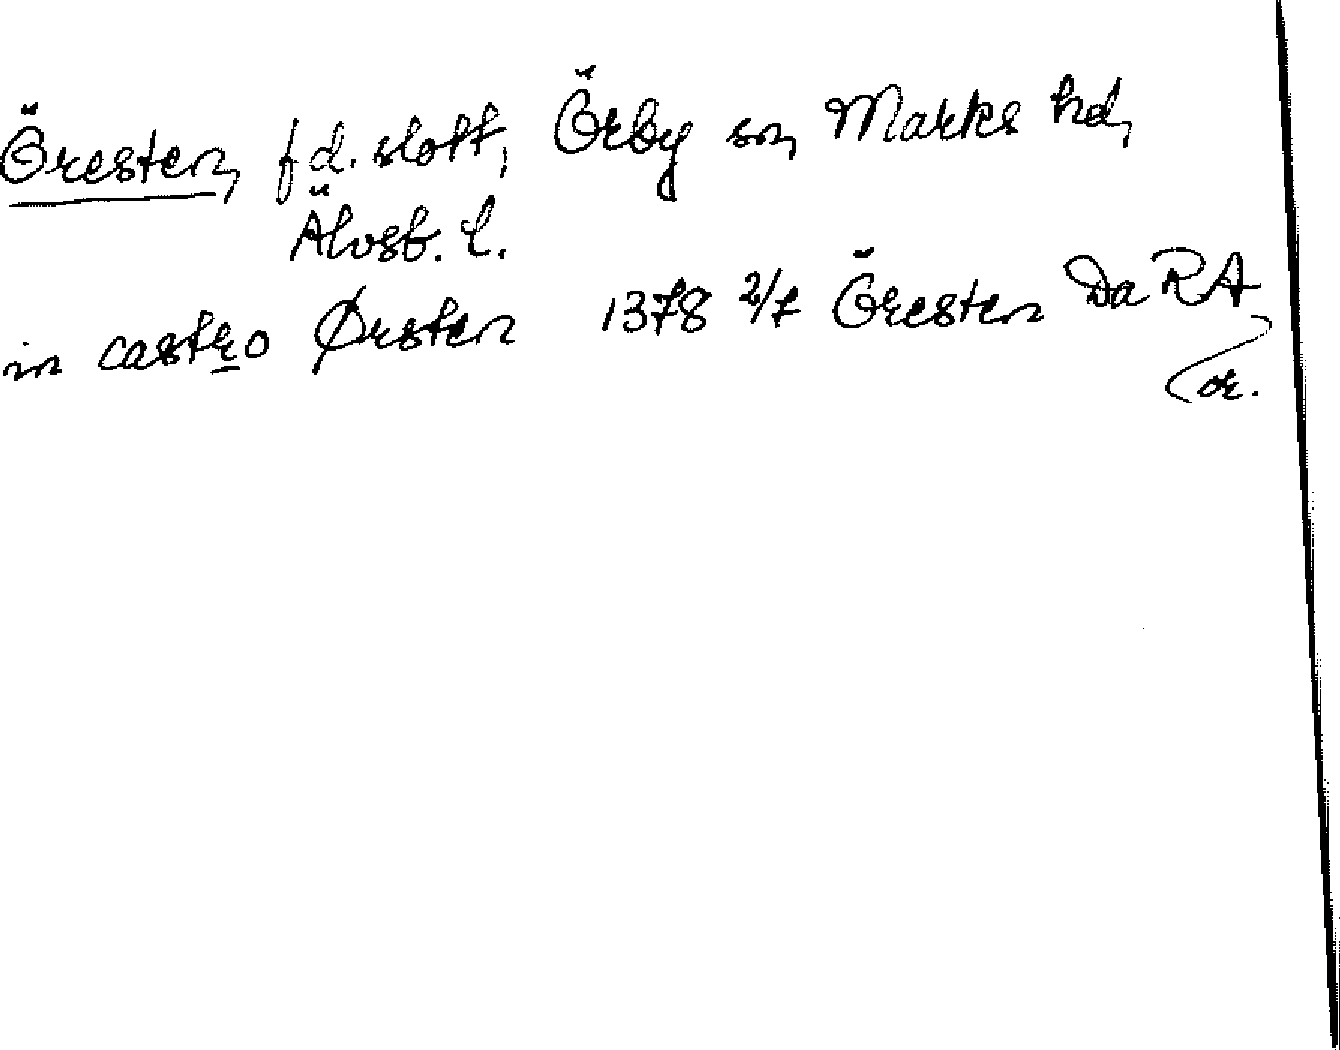 Öresten, f d. slott, Örby sn, Marks hd,
Älvsb. l.
in castro Ørsten 1378 2/7 Öresten Da RA
or.